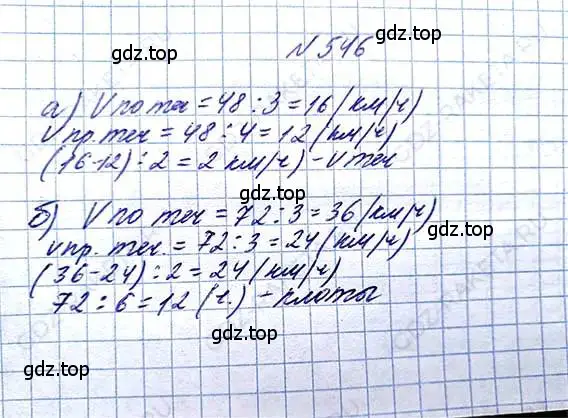 gdz.top
N 546
а) Vпо теч = 48 : 3 = 16 (км/ч)
Vпр. теч = 48 : 4 = 12 (км/ч)
gdz.top
(16-12) : 2 = 2 км/ч) - Vтеч
gdz.top
б) Vпо теч = 72 : 3 = 36 (км/ч)
vпр. теч. = 72 : 3 = 24 (км/ч)
gdz.top
(36-24) : 2 = 24 (км/ч)
72 : 6 = 12 (ч.) - плоты
gdz.top
gdz.top